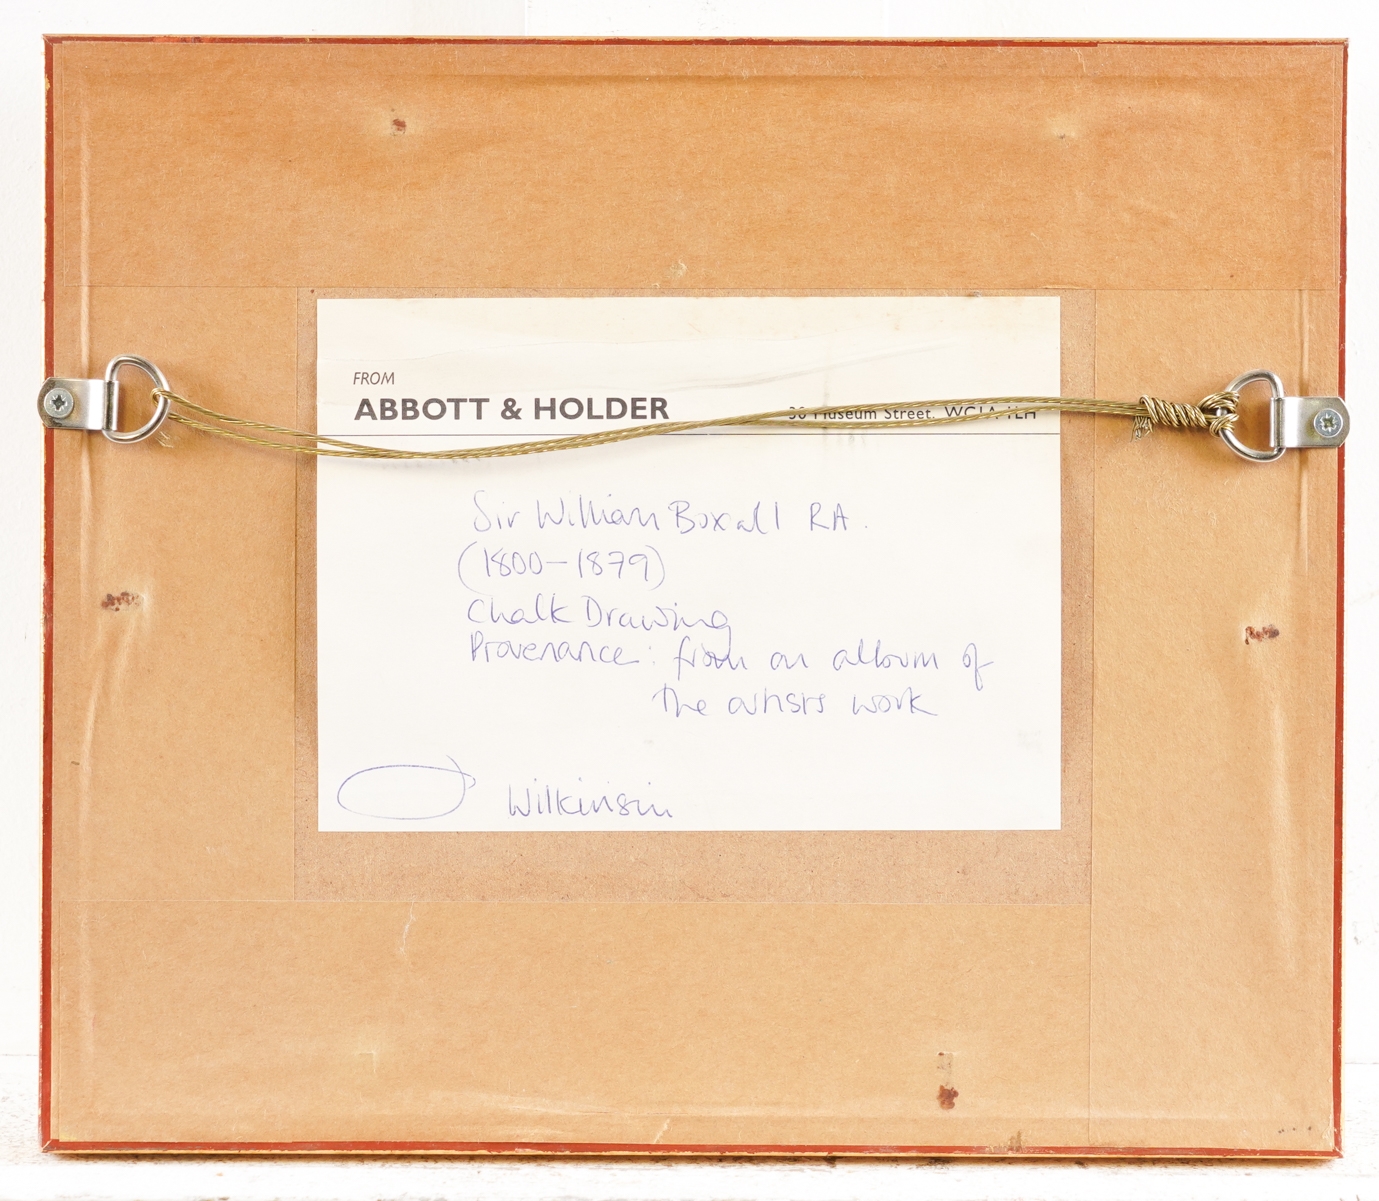 FROM
ABBOTT & HOLDER 30 Museum Street. WC1A 1LH
Sir William Boxall RA.
(1800-1879)
Chalk Drawing
Provenance: from an album of
the artists work
Wilkinson